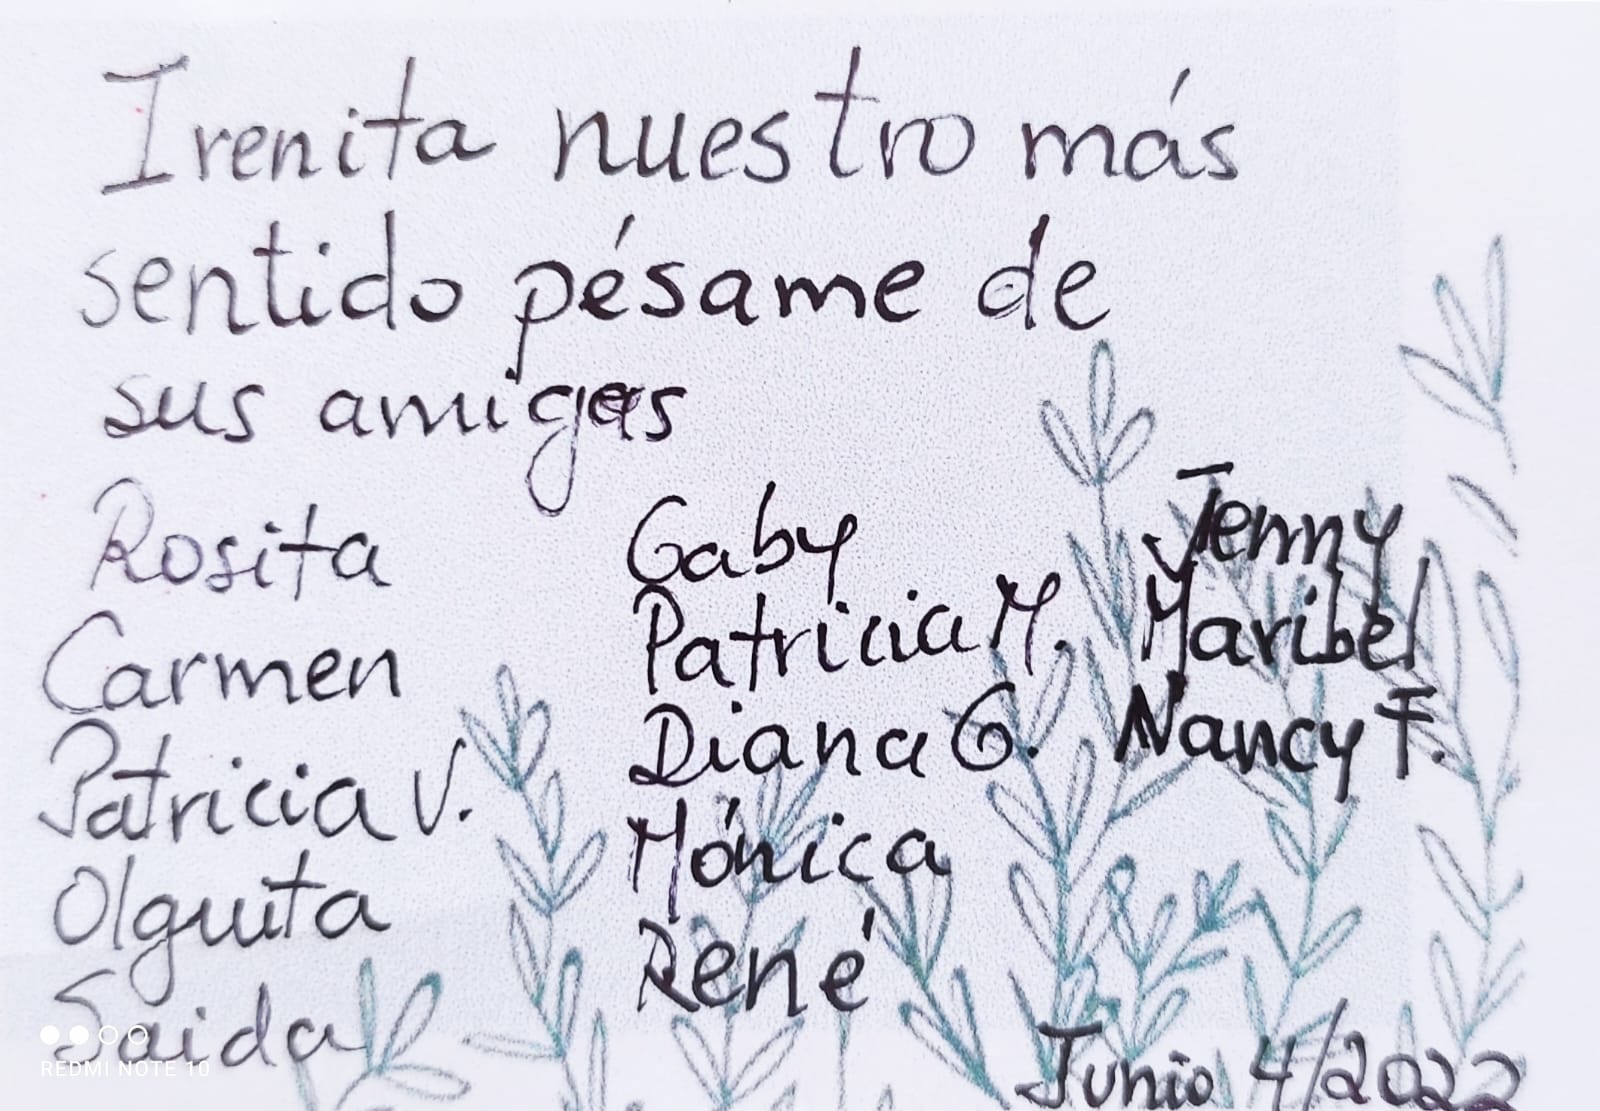 Irenita nuestro más
sentido pésame de
sus amigas
Rosita
Carmen
Patricia V.
Olguita
Saida
Gaby
Patricia M.
Diana G.
Mónica
René
Jenny
Maribel
Nancy F.
Junio 4/2022
REDMI NOTE 10